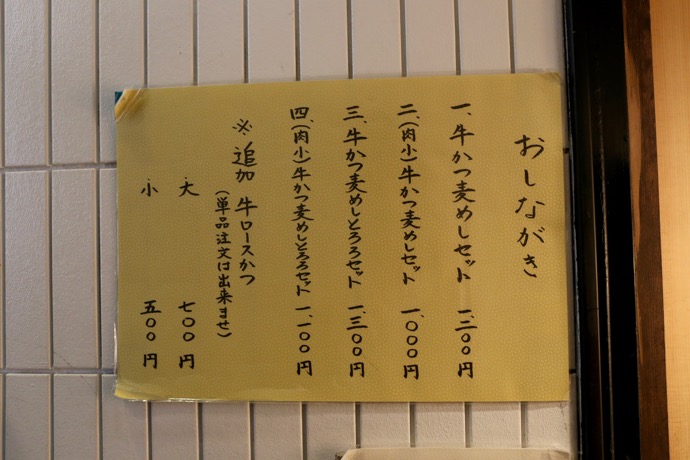 おしながき
一、牛かつ麦めしセット 一、二〇〇円
二、(肉小)牛かつ麦めしセット 一、〇〇〇円
三、牛かつ麦めしとろろセット 一、三〇〇円
四、(肉小)牛かつ麦めしとろろセット 一、一〇〇円
※追加 牛ロースかつ
(単品注文は出来ませ)
・大 七〇〇円
・小 五〇〇円